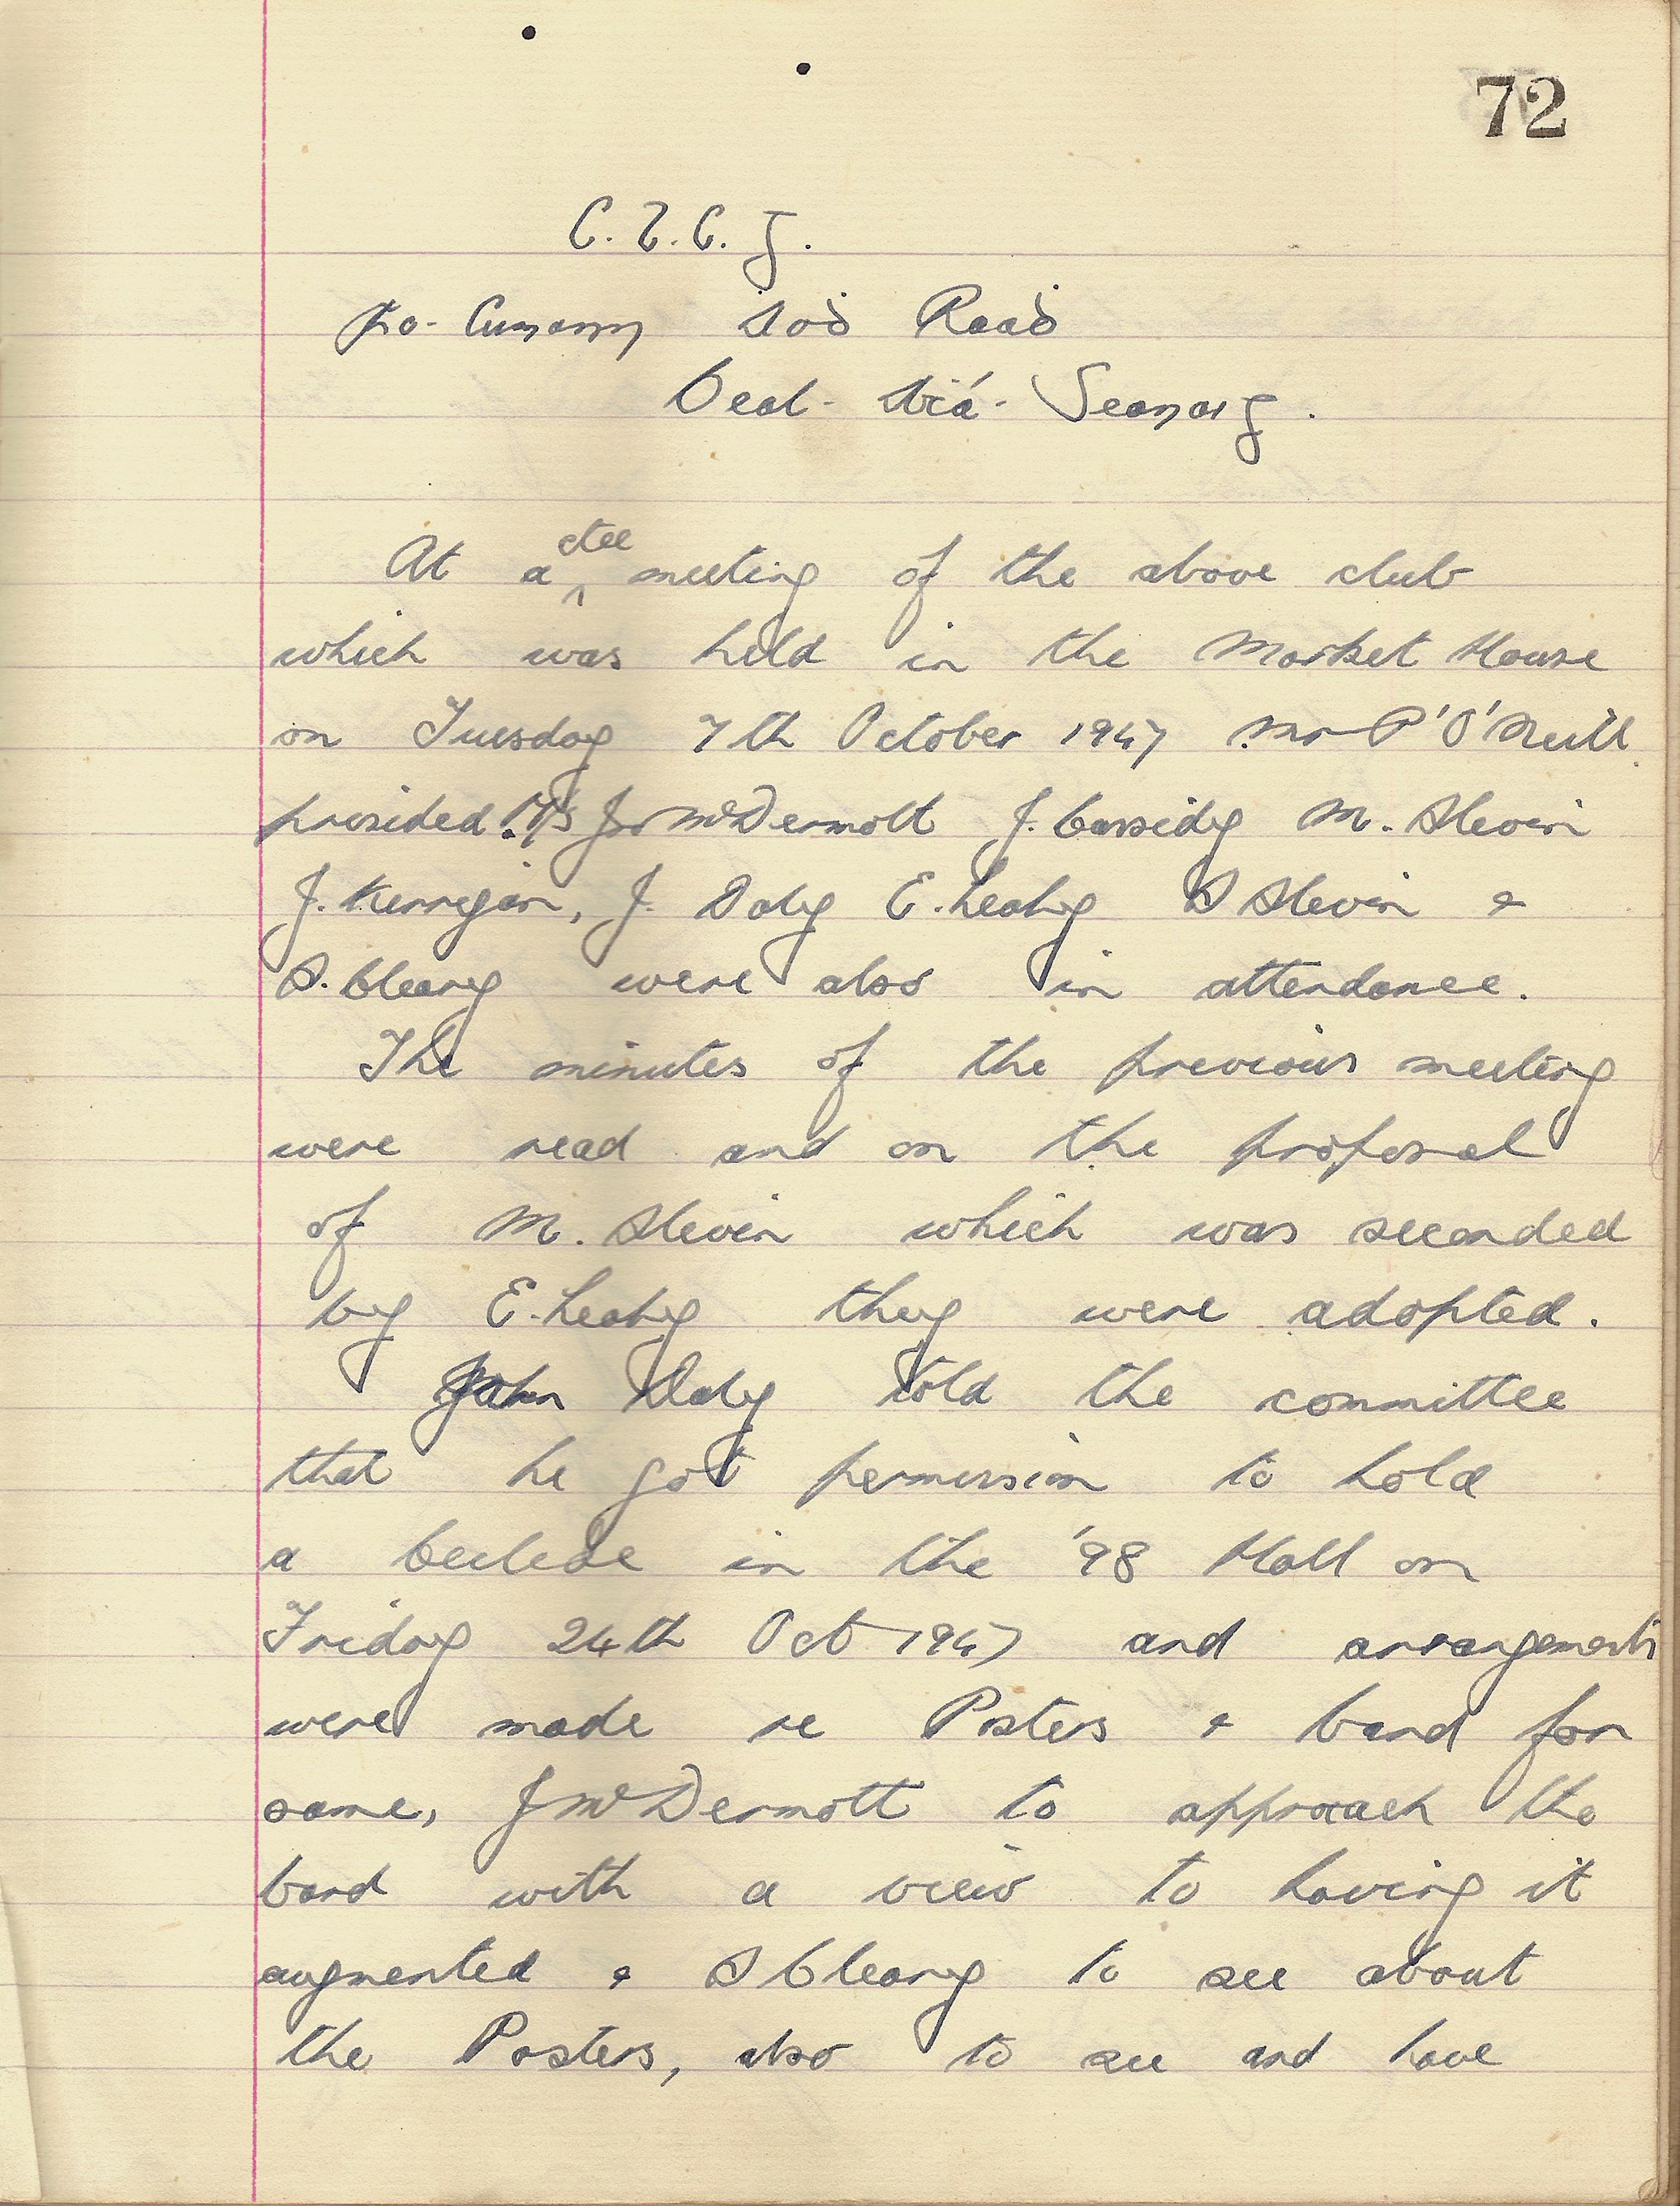 72
C. L. C. G.
Fo-Cumann Aoḋ Ruaḋ
Beal-Áṫa-Seanaig.
At a ctee meeting of the above club
which was held in the Market House
on Tuesday 7th October 1947 Mr P'O'Neill
presided. M/s J McDermott J. Cassidy M. Slevin
J. Kerrigan, J. Daly E. Leahy S Slevin &
S. Cleary were also in attendance.
The minutes of the previous meeting
were read and on the proposal
of M. Slevin which was seconded
by E. Leahy they were adopted.
John Daly told the committee
that he got permission to hold
a Ceilede in the '98 Hall on
Friday 24th Oct 1947 and arrangements
were made re Posters & band for
same, J McDermott to approach the
band with a view to having it
augmented & S Cleary to see about
the Posters, also to see and have